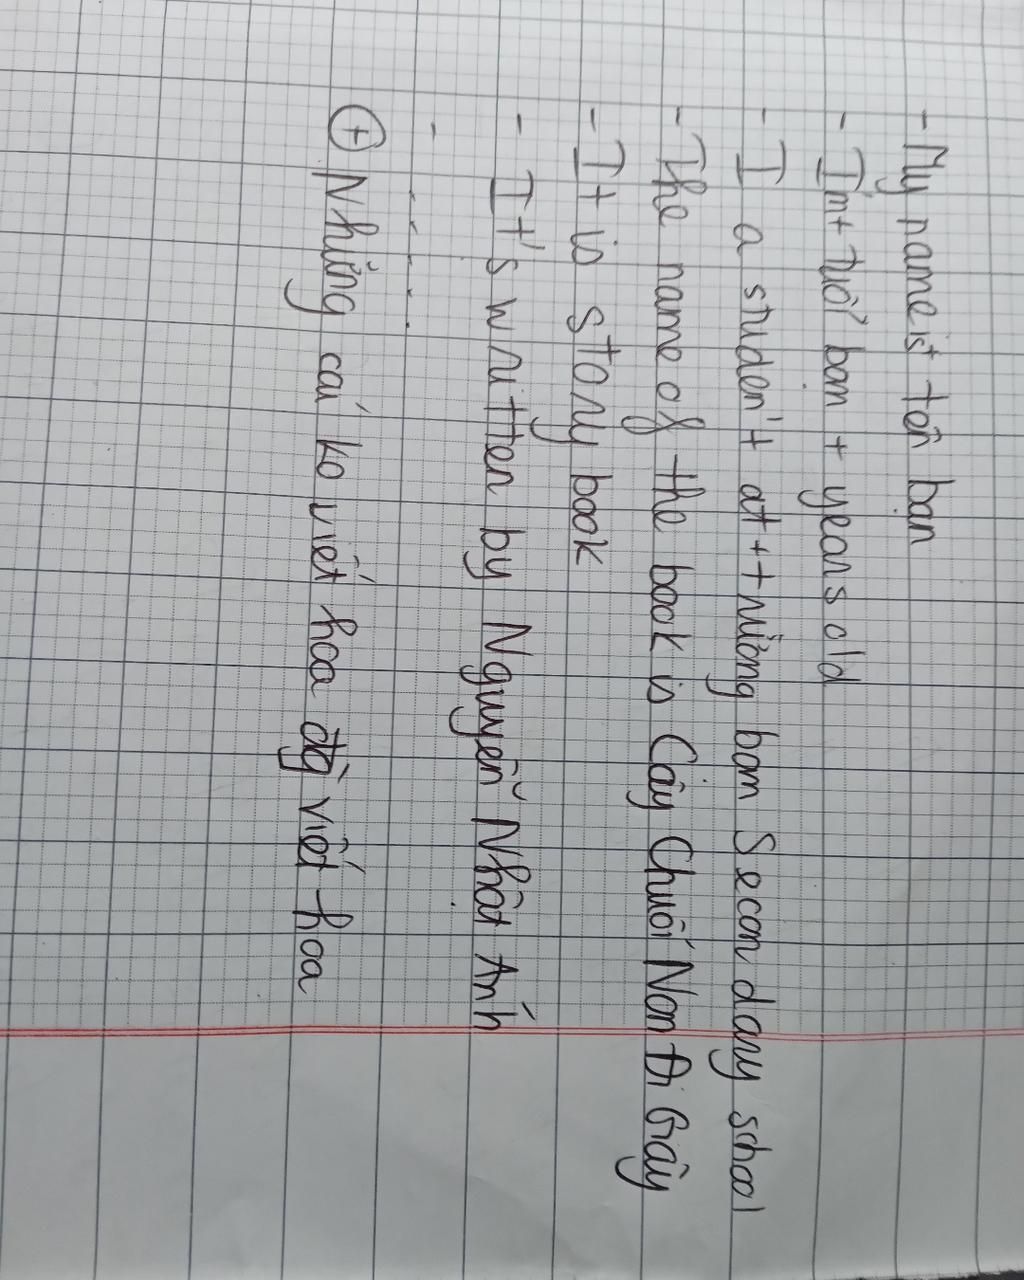 - My name is + tên bạn
- I'm + tuổi bạn + years old
- I a student + at + trường bạn Secondary school
- The name of the book is Cây Chuối Non Đi Giày
- It is story book
- It's written by Nguyễn Nhật Ánh
- ......
+ Những cái ko viết hoa đg viết hoa